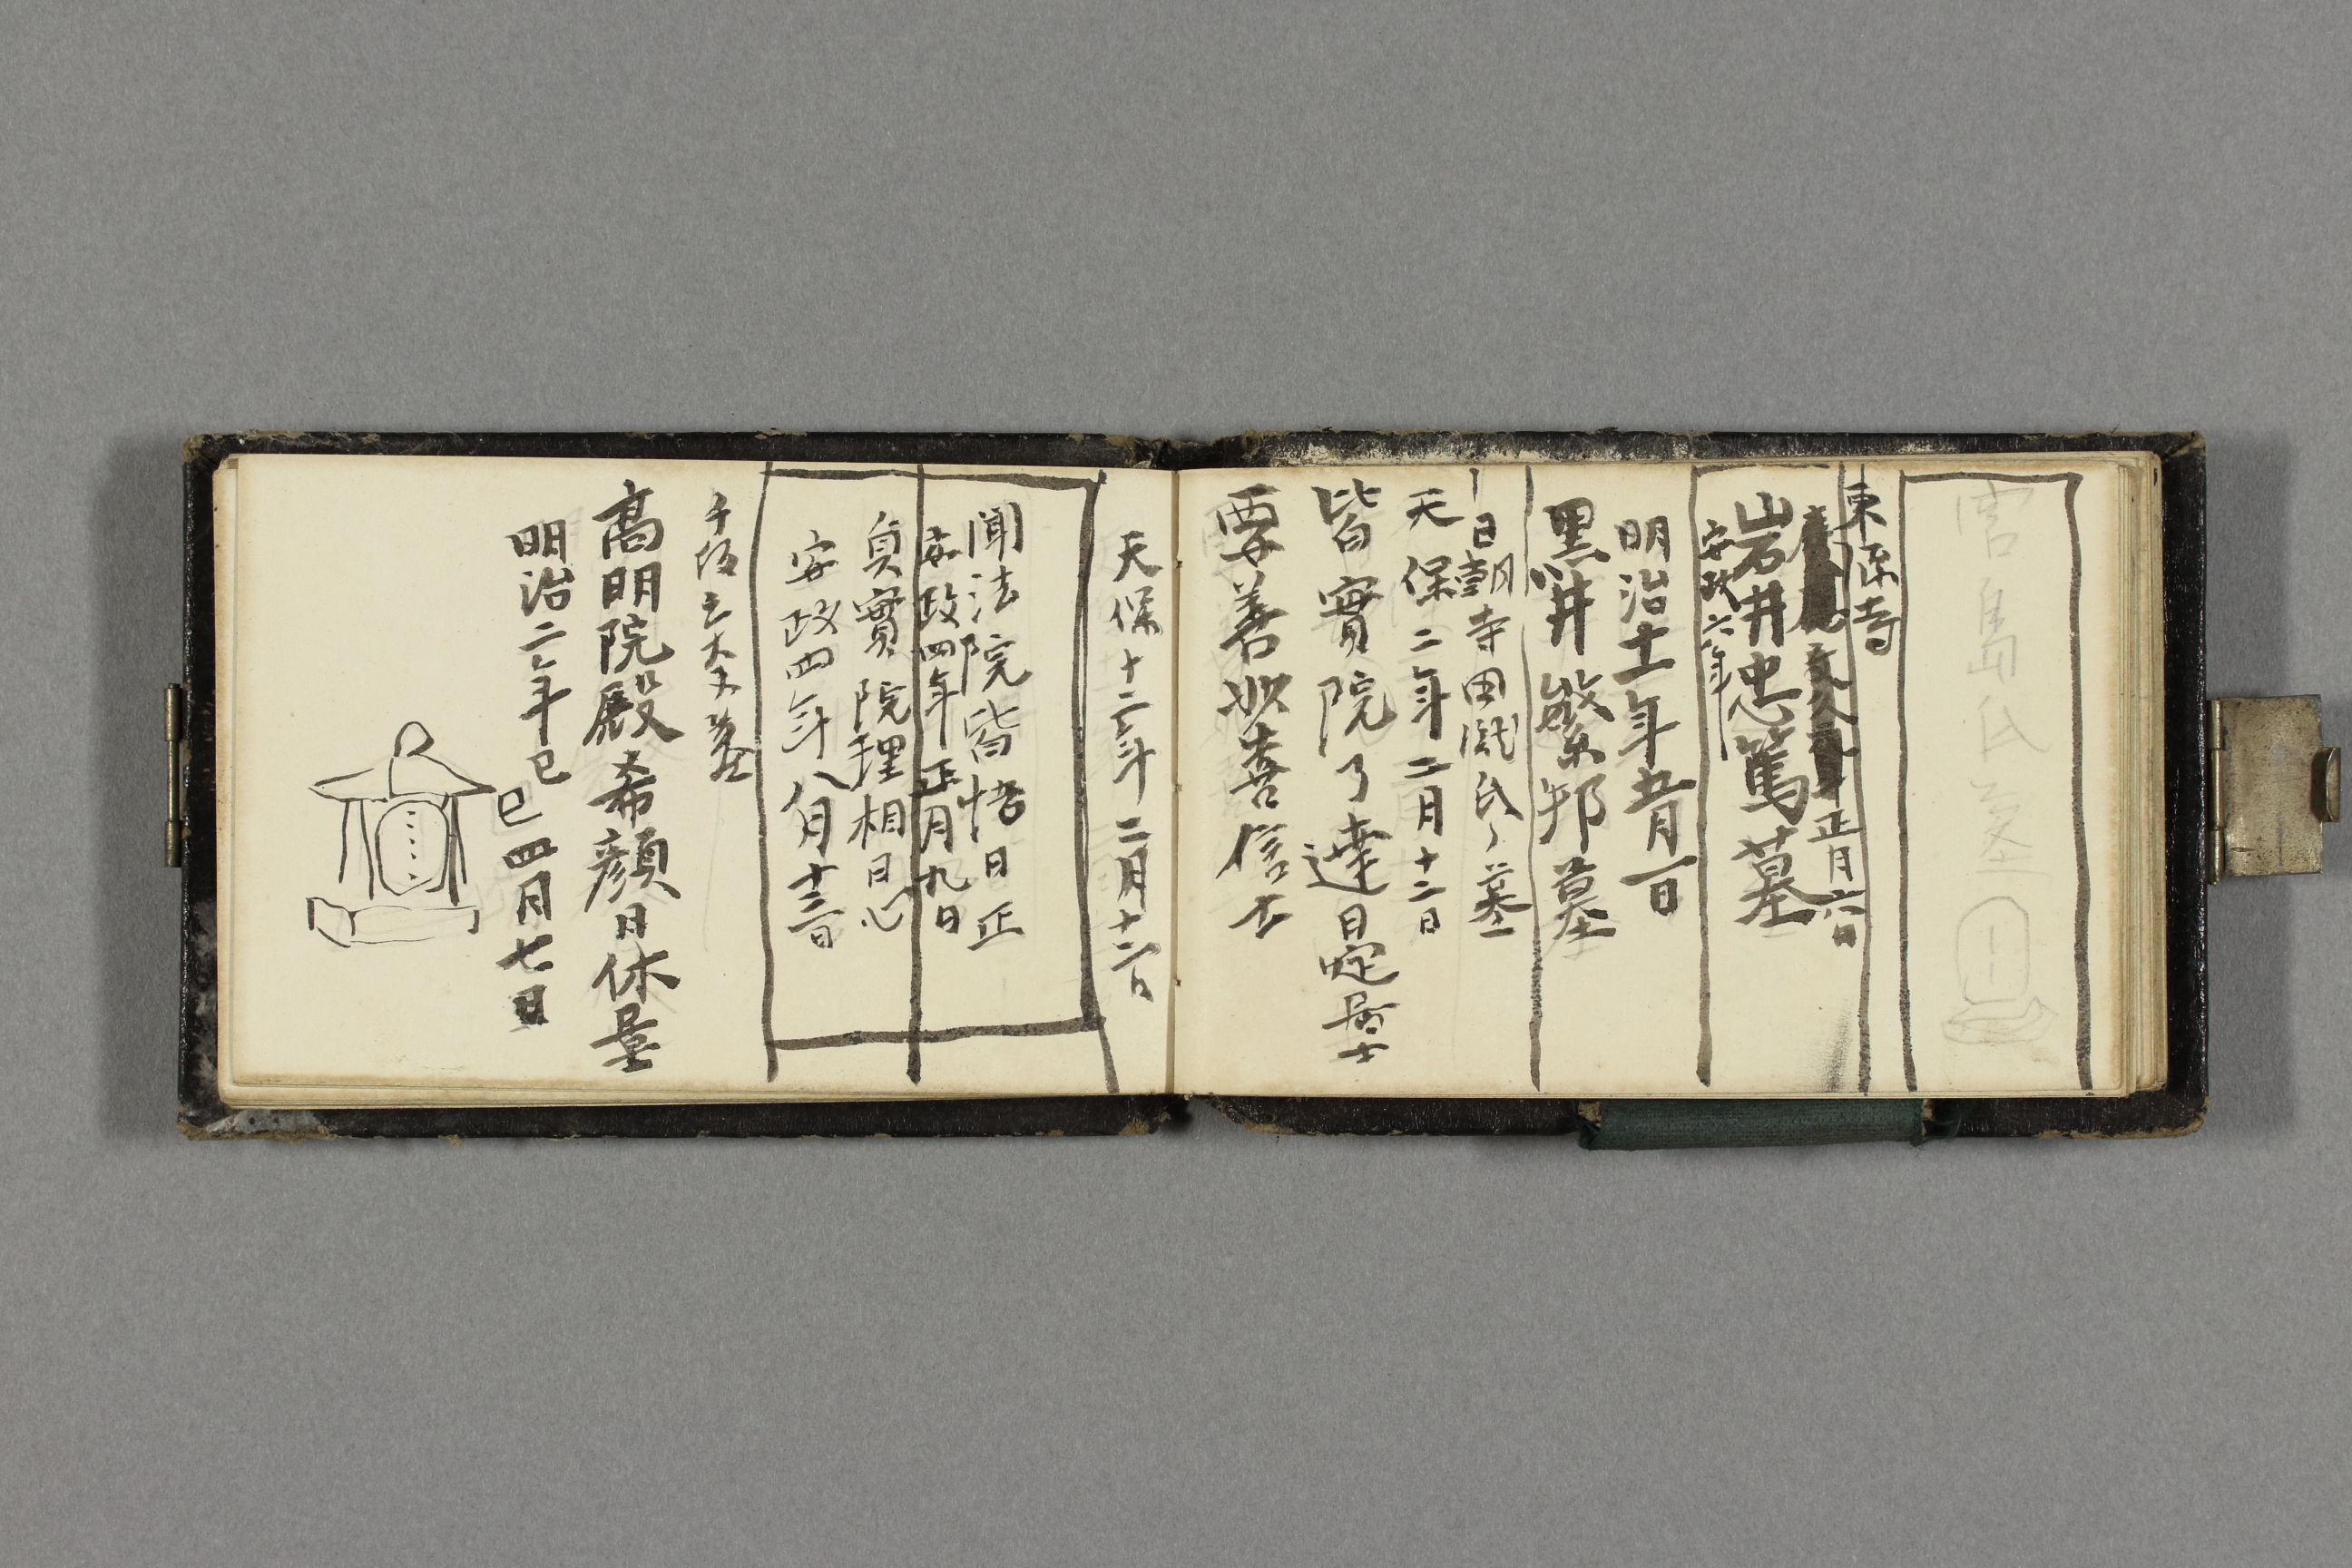 東源寺
正月六日
岩井忠篤墓
安政六年
明治十一年五月一日
黒井繁邦墓
日朝寺
氏ノ墓
天保二年二月十二日
皆實院了達日定居士
要善妙喜信女
天保十二年二月十一日
聞法院皆悟日正
安政四年正月九日
貞實院理相日心
安政四年八月十三日
千坂太夫墓
高明院殿希顔日休墓
明治二年巳
巳四月七日